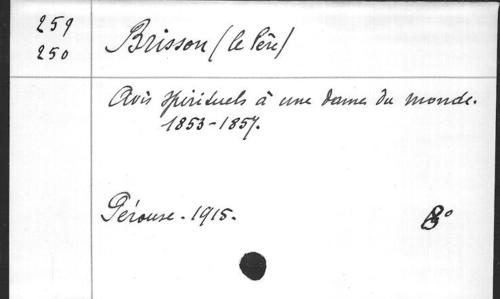 259
250
Brisson (le Père)
Avis spirituels à une dame du monde.
1853-1857.
Pérouse - 1915.
8°